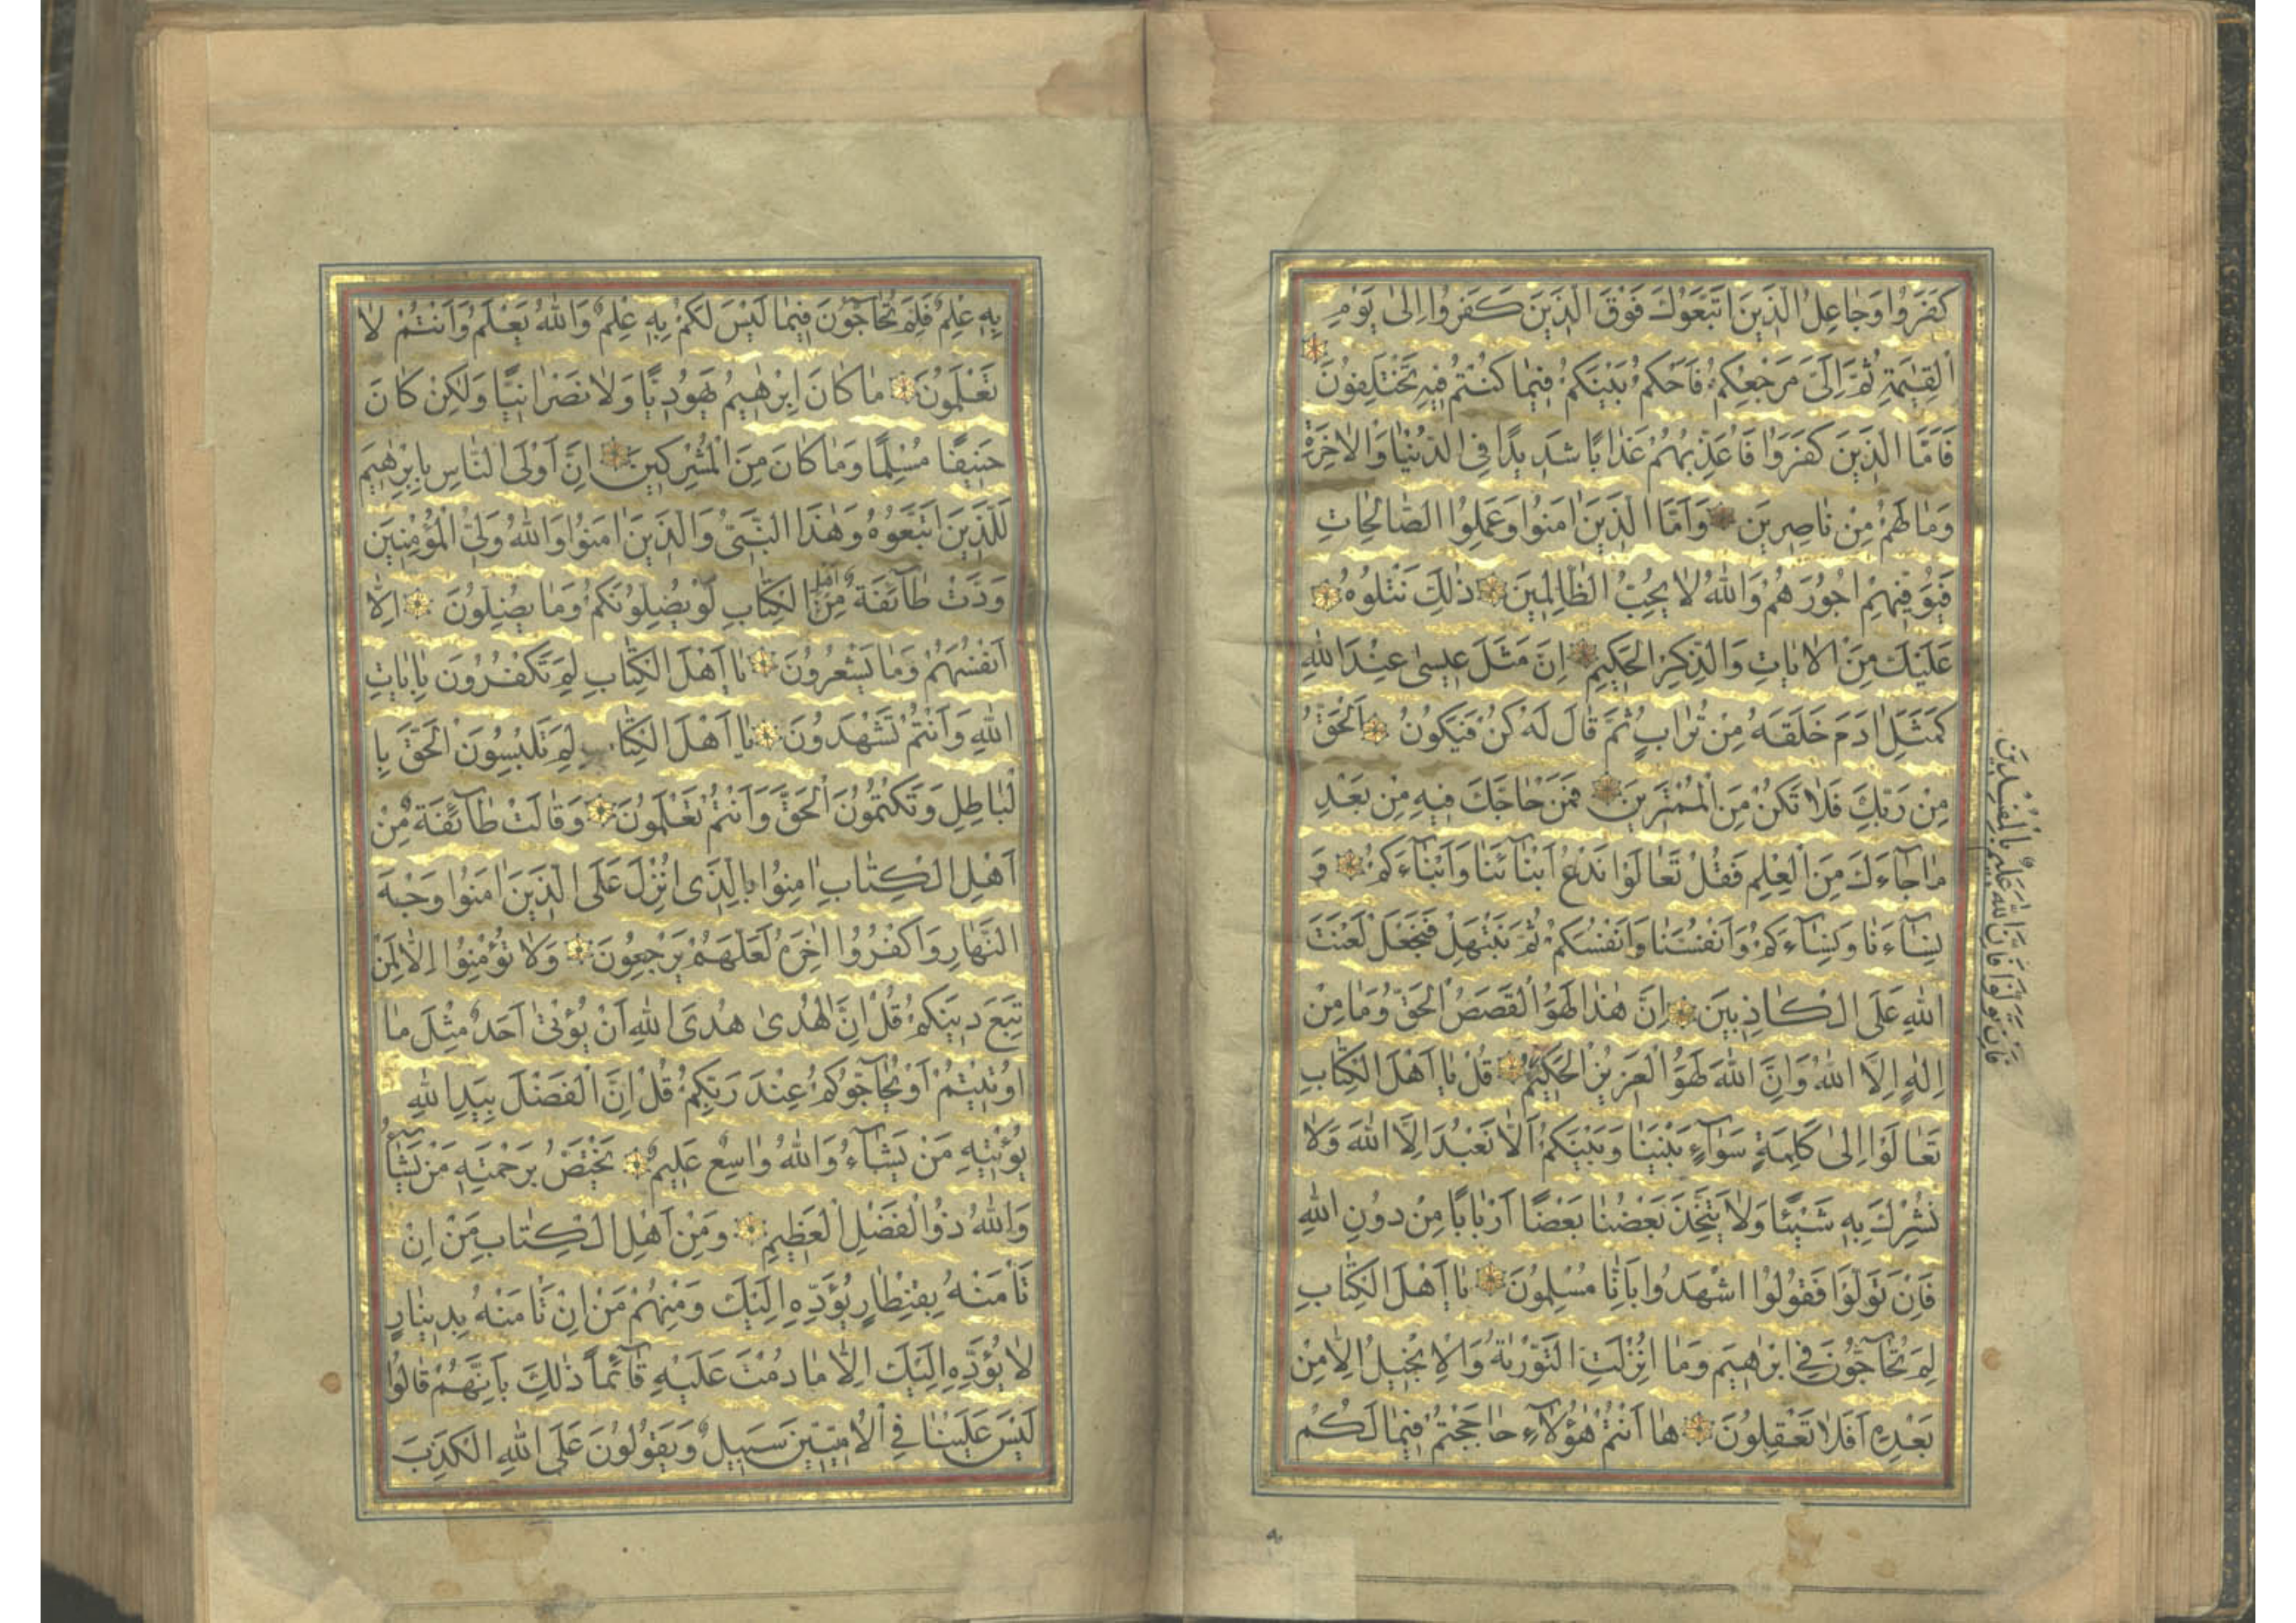 كَفَرُوا وَجَاعِلُ الَّذِينَ اتَّبَعُوكَ فَوْقَ الَّذِينَ كَفَرُوا اِلىٰ يَوْمِ
الْقِيٰمَةِ ثُمَّ اِلَىَّ مَرْجِعُكُمْ فَاَحْكُمُ بَيْنَكُمْ فِيمٰا كُنْتُمْ فِيهِ تَخْتَلِفُونَ
فَاَمَّا الَّذِينَ كَفَرُوا فَاُعَذِّبُهُمْ عَذٰابًا شَدِيدًا فِى الدُّنْيٰا وَالْاٰخِرَةِ
وَمٰا لَهُمْ مِنْ نٰاصِرِينَ وَاَمَّا الَّذِينَ اٰمَنُوا وَعَمِلُوا الصّٰالِحٰاتِ
فَيُوَفِّيهِمْ اُجُورَهُمْ وَاللّٰهُ لٰا يُحِبُّ الظّٰالِمِينَ ذٰلِكَ نَتْلُوهُ
عَلَيْكَ مِنَ الْاٰيٰاتِ وَالذِّكْرِ الْحَكِيمِ اِنَّ مَثَلَ عِيسىٰ عِنْدَ اللّٰهِ
كَمَثَلِ اٰدَمَ خَلَقَهُ مِنْ تُرٰابٍ ثُمَّ قٰالَ لَهُ كُنْ فَيَكُونُ اَلْحَقُّ
مِنْ رَبِّكَ فَلٰا تَكُنْ مِنَ الْمُمْتَرِينَ فَمَنْ حٰاجَّكَ فِيهِ مِنْ بَعْدِ
مٰا جٰاءَكَ مِنَ الْعِلْمِ فَقُلْ تَعٰالَوْا نَدْعُ اَبْنٰائَنٰا وَاَبْنٰاءَكُمْ وَ
نِسٰاءَنٰا وَنِسٰاءَكُمْ وَاَنْفُسَنٰا وَاَنْفُسَكُمْ ثُمَّ نَبْتَهِلْ فَنَجْعَلْ لَعْنَتَ
اللّٰهِ عَلَى الْكٰاذِبِينَ اِنَّ هٰذٰا لَهُوَ الْقَصَصُ الْحَقُّ وَمٰا مِنْ
اِلٰهٍ اِلَّا اللّٰهُ وَاِنَّ اللّٰهَ لَهُوَ الْعَزِيزُ الْحَكِيمُ قُلْ يٰا اَهْلَ الْكِتٰابِ
تَعٰالَوْا اِلىٰ كَلِمَةٍ سَوٰاءٍ بَيْنَنٰا وَبَيْنَكُمْ اَلّٰا نَعْبُدَ اِلَّا اللّٰهَ وَلٰا
نُشْرِكَ بِهِ شَيْئًا وَلٰا يَتَّخِذَ بَعْضُنٰا بَعْضًا اَرْبٰابًا مِنْ دُونِ اللّٰهِ
فَاِنْ تَوَلَّوْا فَقُولُوا اشْهَدُوا بِاَنّٰا مُسْلِمُونَ يٰا اَهْلَ الْكِتٰابِ
لِمَ تُحٰاجُّونَ فِى اِبْرٰهِيمَ وَمٰا اُنْزِلَتِ التَّوْرٰيةُ وَالْاِنْجِيلُ اِلّٰا مِنْ
بَعْدِهِ اَفَلٰا تَعْقِلُونَ هٰا اَنْتُمْ هٰؤُلٰاءِ حٰاجَجْتُمْ فِيمٰا لَكُمْ
فَاِنْ تَوَلَّوْا فَاِنَّ اللّٰهَ عَلِيمٌ بِالْمُفْسِدِينَ
بِهِ عِلْمٌ فَلِمَ تُحٰاجُّونَ فِيمٰا لَيْسَ لَكُمْ بِهِ عِلْمٌ وَاللّٰهُ يَعْلَمُ وَاَنْتُمْ لٰا
تَعْلَمُونَ مٰا كٰانَ اِبْرٰهِيمُ يَهُودِيًّا وَلٰا نَصْرٰانِيًّا وَلٰكِنْ كٰانَ
حَنِيفًا مُسْلِمًا وَمٰا كٰانَ مِنَ الْمُشْرِكِينَ اِنَّ اَوْلَى النّٰاسِ بِاِبْرٰهِيمَ
لَلَّذِينَ اتَّبَعُوهُ وَهٰذَا النَّبِىُّ وَالَّذِينَ اٰمَنُوا وَاللّٰهُ وَلِىُّ الْمُؤْمِنِينَ
وَدَّتْ طٰائِفَةٌ مِنْ اَهْلِ الْكِتٰابِ لَوْ يُضِلُّونَكُمْ وَمٰا يُضِلُّونَ اِلّٰا
اَنْفُسَهُمْ وَمٰا يَشْعُرُونَ يٰا اَهْلَ الْكِتٰابِ لِمَ تَكْفُرُونَ بِاٰيٰاتِ
اللّٰهِ وَاَنْتُمْ تَشْهَدُونَ يٰا اَهْلَ الْكِتٰابِ لِمَ تَلْبِسُونَ الْحَقَّ بِا
لْبٰاطِلِ وَتَكْتُمُونَ الْحَقَّ وَاَنْتُمْ تَعْلَمُونَ وَقٰالَتْ طٰائِفَةٌ مِنْ
اَهْلِ الْكِتٰابِ اٰمِنُوا بِالَّذِى اُنْزِلَ عَلَى الَّذِينَ اٰمَنُوا وَجْهَ
النَّهٰارِ وَاكْفُرُوا اٰخِرَهُ لَعَلَّهُمْ يَرْجِعُونَ وَلٰا تُؤْمِنُوا اِلّٰا لِمَنْ
تَبِعَ دِينَكُمْ قُلْ اِنَّ الْهُدىٰ هُدَى اللّٰهِ اَنْ يُؤْتىٰ اَحَدٌ مِثْلَ مٰا
اُوتِيتُمْ اَوْ يُحٰاجُّوكُمْ عِنْدَ رَبِّكُمْ قُلْ اِنَّ الْفَضْلَ بِيَدِ اللّٰهِ
يُؤْتِيهِ مَنْ يَشٰاءُ وَاللّٰهُ وٰاسِعٌ عَلِيمٌ يَخْتَصُّ بِرَحْمَتِهِ مَنْ يَشٰاءُ
وَاللّٰهُ ذُو الْفَضْلِ الْعَظِيمِ وَمِنْ اَهْلِ الْكِتٰابِ مَنْ اِنْ
تَأْمَنْهُ بِقِنْطٰارٍ يُؤَدِّهِ اِلَيْكَ وَمِنْهُمْ مَنْ اِنْ تَأْمَنْهُ بِدِينٰارٍ
لٰا يُؤَدِّهِ اِلَيْكَ اِلّٰا مٰا دُمْتَ عَلَيْهِ قٰائِمًا ذٰلِكَ بِاَنَّهُمْ قٰالُوا
لَيْسَ عَلَيْنٰا فِى الْاُمِّيِّينَ سَبِيلٌ وَيَقُولُونَ عَلَى اللّٰهِ الْكَذِبَ